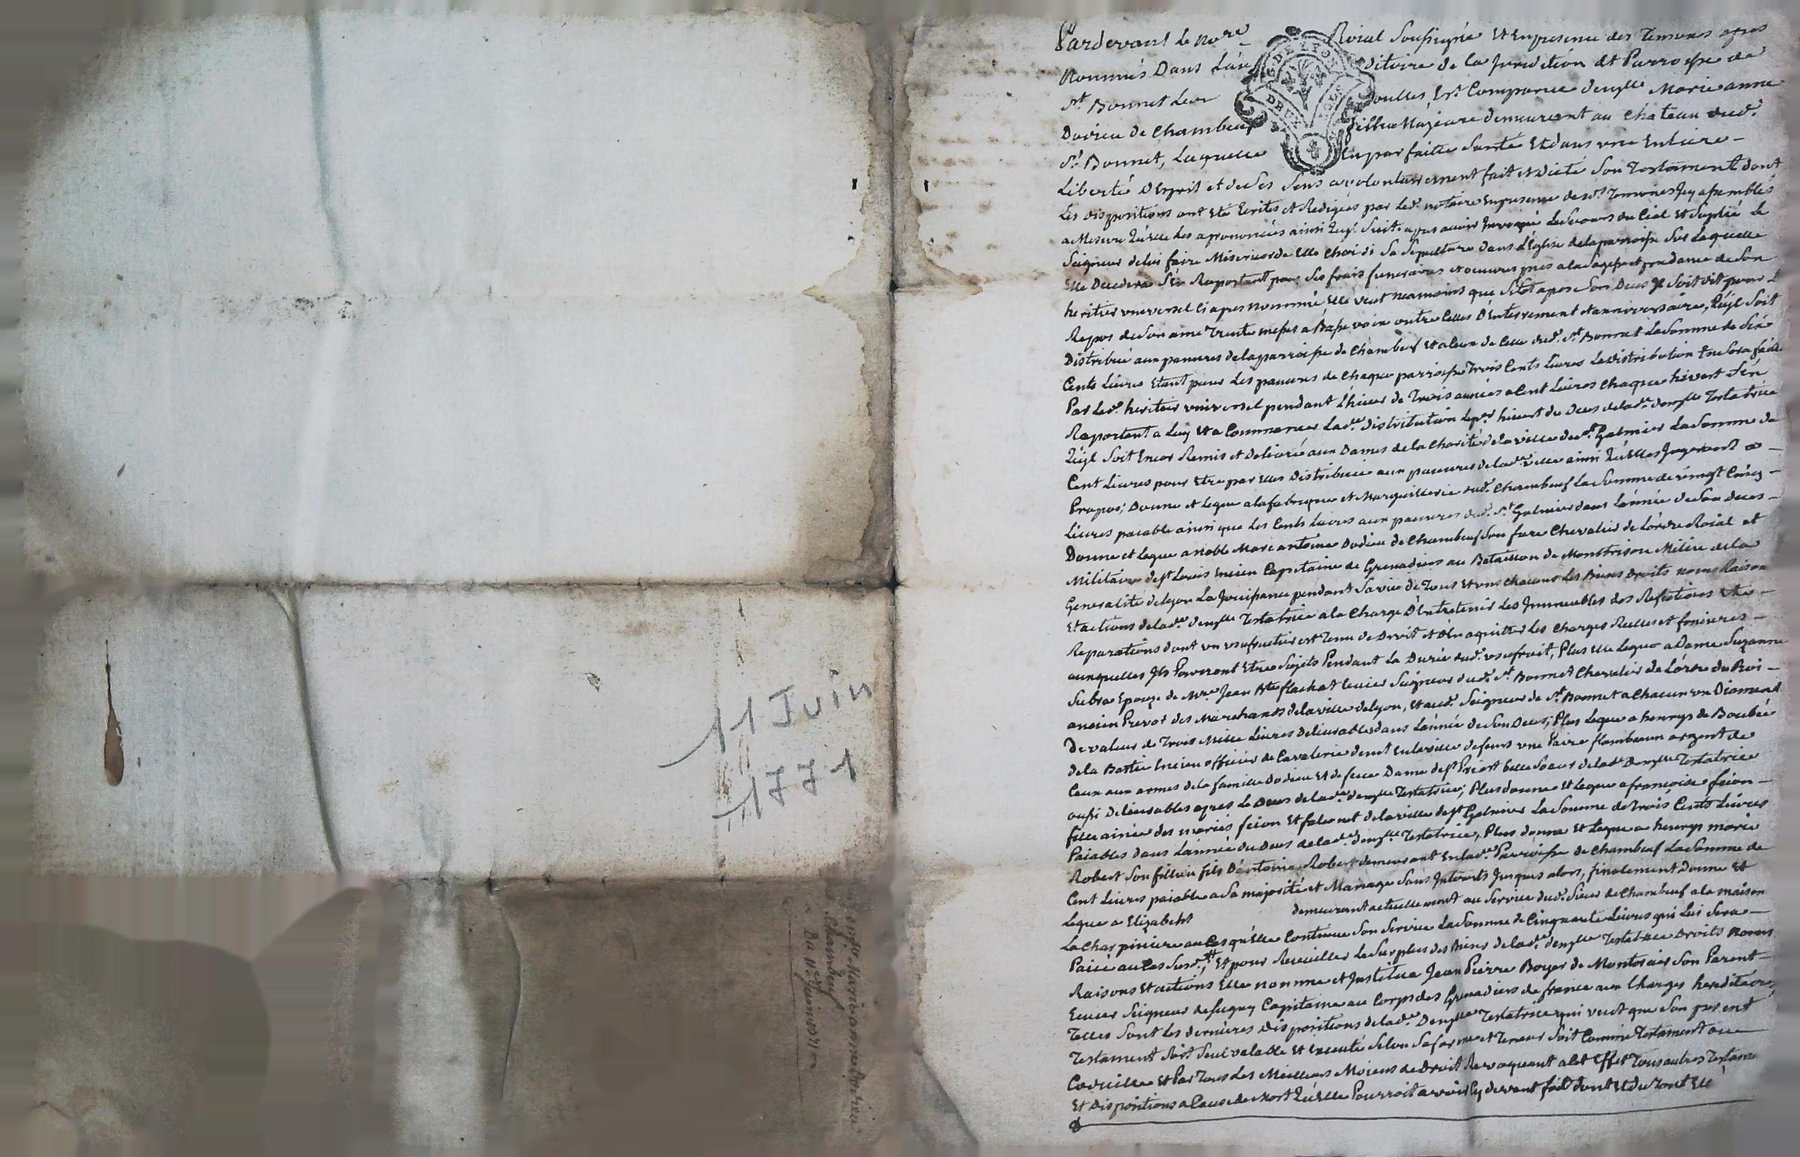 11 Juin
1771
Marie anne Dodieu
Chambeuf
Du 11e Juin 1771
Pardevant le no.re Roial Soussigné et en presence des Temoins apres
nommés Dans l'auditoire de la Juridition et Parroisse de
st Bonnet Les oulles, Est Comparue demlle Marie anne
Dodieu de Chambeuf fille Majeure demeurant au Chateau dud.
st Bonnet, Laquelle En parfaitte Santé Et dans une Entiere
Liberté D'esprit et de Ses Sens a volontairement fait et dicté Son Testament dont
Les dispositions ont Eté Ecrites et Redigées par led. notaire En presence desd. Temoins Jcy assemblés
a Mesure qu'elle les a prononcées ainsi quil Suit. apres avoir Invoqué Le Secours du Ciel Et Suplié le
Seigneur de lui faire Misericorde Elle Choisi Sa Sepulture dans l'Eglise de la parroisse Sur Laquelle
Elle Decedera S'En Raportant pour Ses frais funeraires et oeuvres pies a la Sagesse et prudence de Son
heritier universel Ci apres nommé Elle veut neanmoins que Sitot apres Son Deces Jl Soit dit pour le
Repos de Son ame Trente messes a Basse voix outre Celles D'enterrement et anniversaire, quil Soit
Distribué aux pauvres de la parroisse de Chambeuf Et a Ceux de Celle dud. st Bonnet La Somme de Six
Cents Livres Etant pour Les pauvres de Chaque parroisse Trois Cents Livres La distribution En Sera faitte
Par led. heritier universel pendant L'hiver de Trois années a Cent Livres Chaque hivert S'en
Raportant a Luy Et a Commencer Lad. distribution Le pr. hivert du Deces de lad. demlle Testatrice
quil Soit Encor Remis et Delivré aux Dames de la Charité de la ville de st Galmier La Somme de
Cent Livres pour Etre par Elles Distribuée aux pauvres de lad. ville ainsi qu'Elles Jugeront a
Propos; Donne et Legue a la fabrique et Marguillerie dud. Chambeuf La Somme de vingt Cinq
Livres paiable ainsi que Les Cents Livres aux pauvres dud. st Galmier dans L'année de Son deces
Donne et Legue a noble Marc antoine Dodieu de Chambeuf Son frere Chevalier de L'ordre Roial et
Militaire de st Louis Encien Capitaine de Grenadiers au Bataillon de Montbrison Milice de la
Generalité de Lyon La Jouissance pendant Sa vie de Tous Et uns Chacuns Les Biens Droits noms Raison
Et actions de lad. demlle Testatrice a la Charge D'Entretenir Les Jmmeubles des Refections Et
Reparations dont un usufructier est Tenu de Droit et d'En aquitter Les Charges Reelles et foncieres
auxquelles Jls Pourront Etre Sujets Pendant La Durée dud. usufruit, Plus Elle Legue a Dame Suzanne
Subra Epouze de Mre Jean Bte flachat Ecuier Seigneur dud. st Bonnet Chevalier de L'ordre du Roi
ancien Prevot des Marchands de la ville de Lyon, Et aud. Seigneur de st Bonnet a Chacun un Diamend
De valeur de Trois Mille Livres delivrables dans L'année de Son Deces; Plus Legue a henrys de Boubée
de la Bastie Encien officier de Cavalerie demt En la ville de feurs une Paire flambeaux argent de
Ceux aux armes de la famille Dodieu Et de feue Dame de st Priest Belle Soeur de lad. Demlle Testatrice
aussi delivrables apres Le Deces de lad. demlle Testatrice; Plus donne et Legue a francoise feion
fille ainée des mariés feion Et falconet de la ville de st Galmier La Somme de Trois Cents Livres
Paiables dans L'année du Deces de lad. demlle Testatrice, Plus donne Et Legue a henrys marie
Robert Son filleu fils D'antoine Robert demeurant En lad. Parroisse de Chambeuf La Somme de
Cent Livres paiable a Sa majorité et Mariage Sans Jnterets Jusques alors, finalement Donne Et
Legue a Elizabeht demeurant actuellement au Service dud. Sieur de Chambeuf a la maison
La Charpiniere au Cas qu'Elle Continue Son Service La Somme de Cinquante Livres qui Lui Sera
Paiée au Cas Susd. Et pour Recueillir Le Surplus des Biens de lad. demlle Testatrice Droits noms
Raisons Et actions Elle nomme et Jnstitue Jean Pierre Boyer de Montorcier Son Parent
Ecuier Seigneur de Sugny Capitaine au Corps des Grenadiers de france aux Charges hereditaires
Telles Sont Les dernieres dispositions de lad. Demlle Testatrice qui veut que Son present
Testament Soit Seul valable Et Executé Selon Sa forme et Teneur Soit Comme Testament ou
Codicille Et Par Tous Les Meilleurs Moiens de Droit Revoquant a Cet Effet Tous autres Testamt
Et Dispositions a Cause de Mort qu'Elle Pourroit avoir Cy devant fait dont Et du Tout Elle